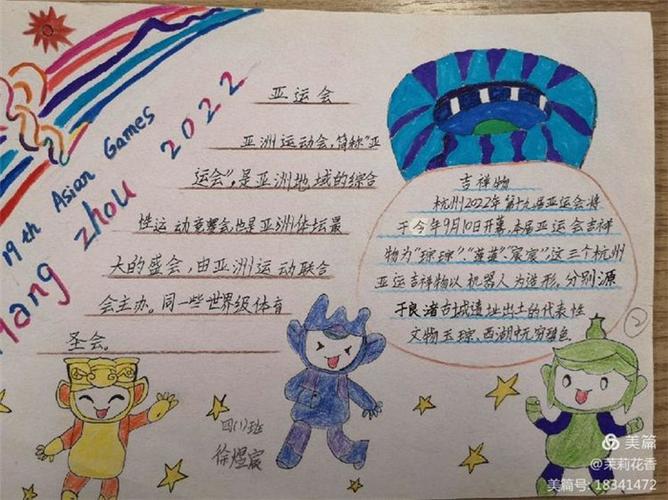 19th Asian Games
Hang zhou 2022
亚运会
亚洲运动会,简称"亚
运会",是亚洲地域的综合
性运动竞赛会,也是亚洲体坛最
大的盛会,由亚洲运动联合
会主办。同一些世界级体育
圣会。
吉祥物
杭州2022年第十九届亚运会将
于今年9月10日开幕,本届亚运会吉祥
物为"琮琮"、"莲莲""宸宸",这三个杭州
亚运吉祥物以机器人为造形,分别源
于良渚古城遗址出土的代表性
文物玉琮、西湖
四(1)班
徐煜宸
2
美篇
@茉莉花香
美篇号:18341472